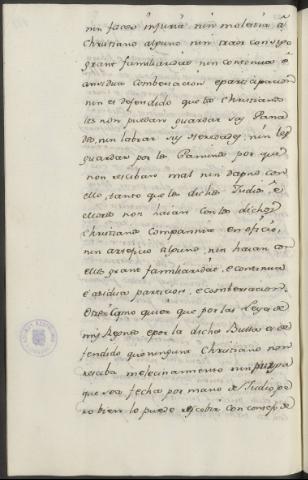 nin facer injuria nin molestia á
Christiano alguno nin traer consigo
grant familiaridat nin continua é
asidua combersacion é participacion
nin es defendido que los Christianos
les non puedan guardar sus Gana
dos, nin labrar sus Heredades, nin los
guardar por los Caminos por que
non resciban mal nin dapno con
ello, tanto que los dichos Judios, é
ellos non haian con los dichos
Christianos Compannia en oficio,
nin artificio alguno, nin haian con
ellos grant familiaridat, é continua
é asidua particion, é combersacion.
Otrosi como quier que por las Leyes de
mis Regnos é por la dicha Bulla es de
fendido que ninguna Christiano non
resciba melecinamiento nin purga
que sea fecha por mano de Judio pe
ro bien lo puede rescibir con consejo de